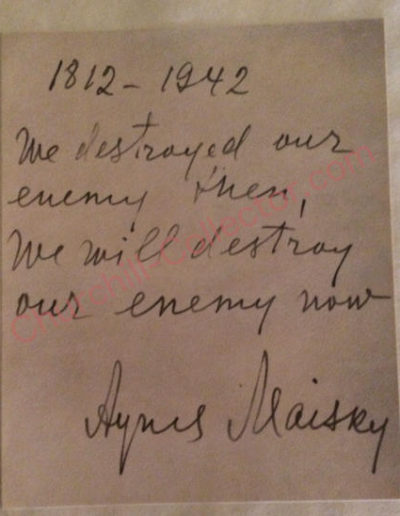 1812 - 1942
We destroyed our
enemy then,
We will destroy
our enemy now
Agnes Maisky
ChurchillCollector.com